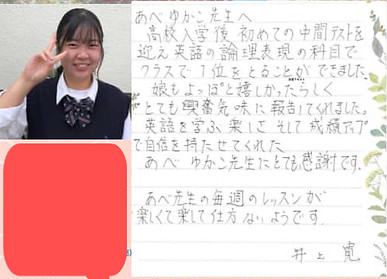 あべ ゆかこ 先生へ
高校入学後 初めての中間テストを
迎え英語の論理表現の科目で
クラスで1位をとることができました。
娘もよっぽど嬉しかったらしく
とても興奮気味に報告してくれました。
英語を学ぶ楽しさ そして成績アップ
で自信を持たせてくれた
あべ ゆかこ先生にとても感謝です。
あべ先生の毎週のレッスンが
楽しくて楽しくて仕方ないようです。
井上 寛